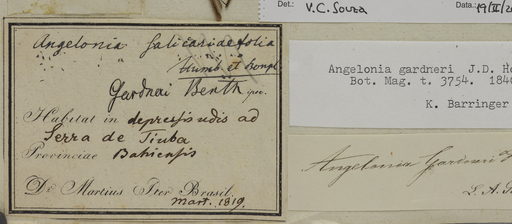 Det: V.C. Souza Data: 19/II/20
Angelonia salicariaefolia
Humb et Bonpl
Gardneri Benth
Habitat in depressis udis ad
Serra de Tiuba
Provinciae Bahiensis
Dr Martius Iter Brasil.
Mart. 1819.
Angelonia gardneri J.D. Ho
Bot. Mag. t. 3754. 1840
K. Barringer
Angelonia Gardneri H
L.A.S.